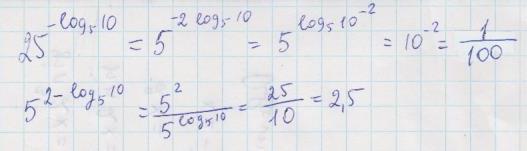 25^{-log₅10} = 5^{-2 log₅10} = 5^{log₅10^{-2}} = 10^{-2} = \frac{1}{100}
5^{2-log₅10} = \frac{5^2}{5^{log₅10}} = \frac{25}{10} = 2,5